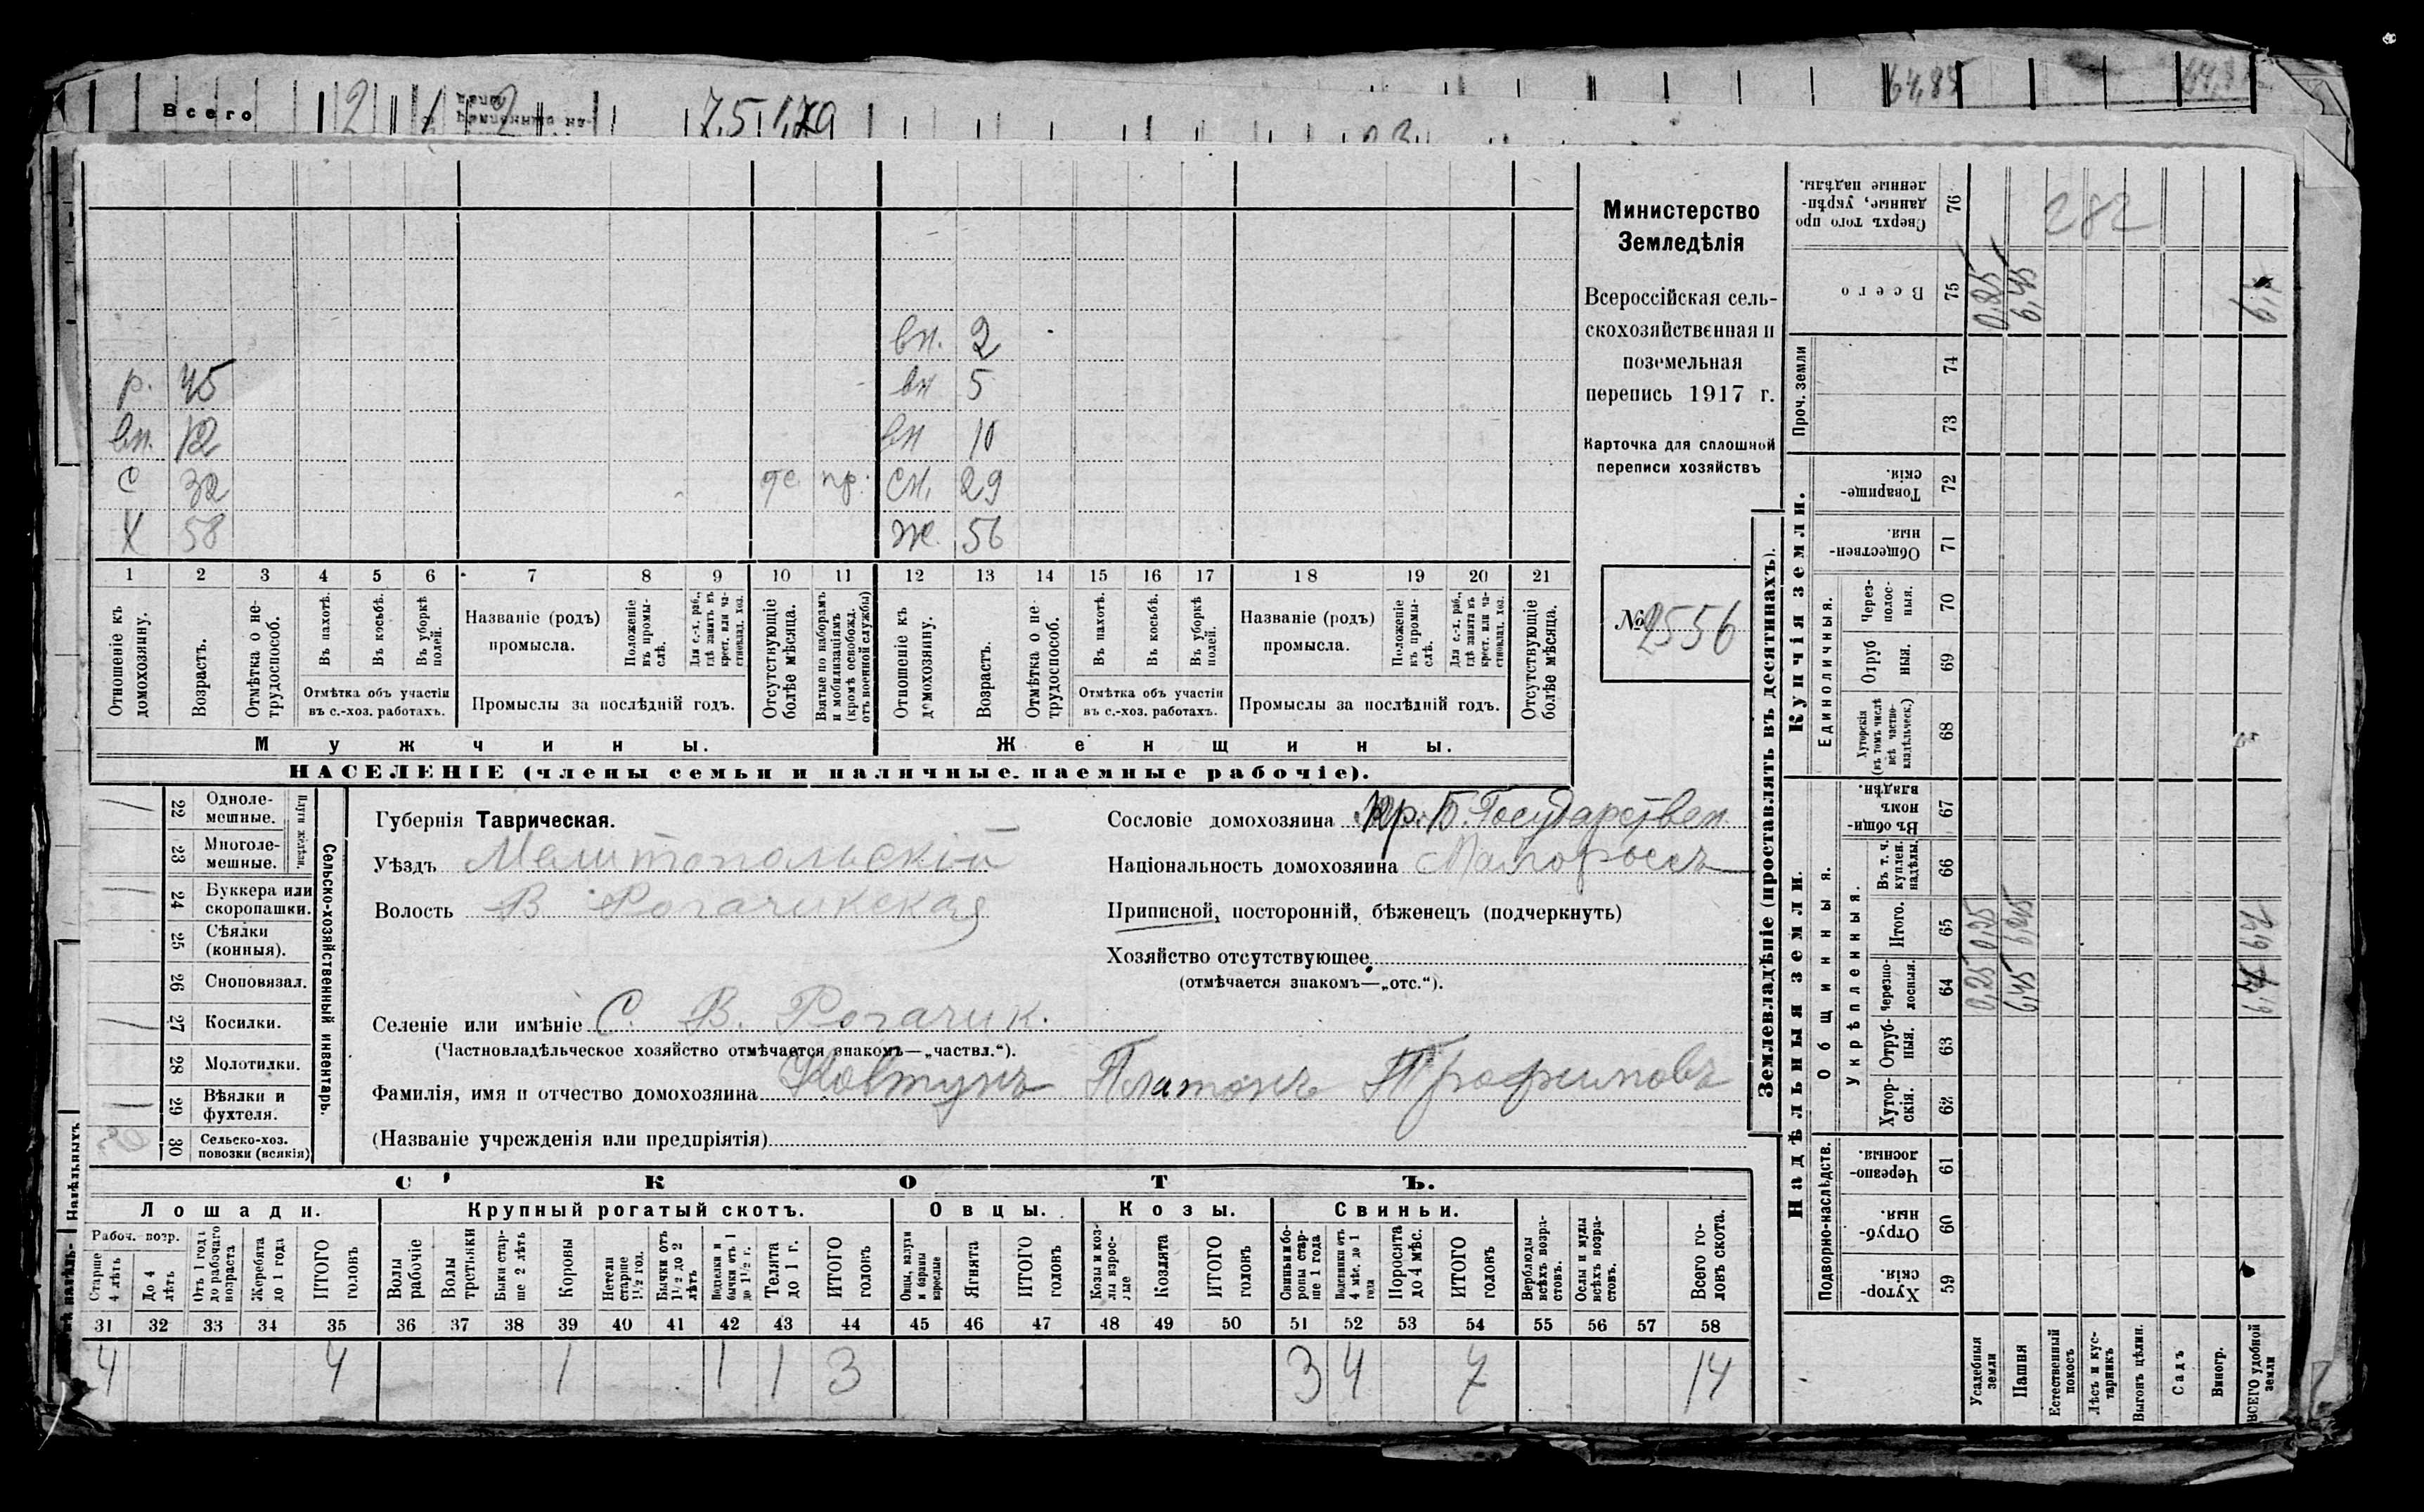 Всего 2 1 2 7,5 1,79 64,85
вн. 2
р. 45 вн 5
вн. 12 вн 10
С 32 те. пр. сн. 29
Х 58 Ж. 56
1 2 3 4 5 6 7 8 9 10 11 12 13 14 15 16 17 18 19 20 21
Отношеніе къ домохозяину.
Возрастъ.
Отмѣтка о нетрудоспособ.
Въ пахотѣ.
Въ косьбѣ.
Въ уборкѣ полей.
Отмѣтка объ участіи
въ с.-хоз. работахъ.
Названіе (родъ)
промысла.
Положеніе въ промыслѣ.
Для с.-х. раб., гдѣ занятъ въ крест. или частновлад. хоз.
Промыслы за послѣдній годъ.
Отсутствующіе болѣе мѣсяца.
Взятые по наборамъ и мобилизаціямъ (кромѣ освобожд. отъ военной службы)
Отношеніе къ домохозяину.
Возрастъ.
Отмѣтка о нетрудоспособ.
Въ пахотѣ.
Въ косьбѣ.
Въ уборкѣ полей.
Отмѣтка объ участіи
въ с.-хоз. работахъ.
Названіе (родъ)
промысла.
Положеніе въ промыслѣ.
Для с.-х. раб., гдѣ занята въ крест. или частновлад. хоз.
Промыслы за послѣдній годъ.
Отсутствующіе болѣе мѣсяца.
Мужчины. Женщины.
НАСЕЛЕНІЕ (члены семьи и наличные наемные рабочіе).
Министерство
Земледѣлія
Всероссійская сель-
скохозяйственная и
поземельная
перепись 1917 г.
Карточка для сплошной
переписи хозяйствъ
№ 2556
Сельско-хозяйственный инвентарь.
Плуги желѣзн.
22 Одноле-
мешные.
23 Многоле-
мешные.
24 Буккера или
скоропашки.
25 Сѣялки
(конныя).
26 Сноповязал.
27 Косилки.
28 Молотилки.
29 Вѣялки и
фухтеля.
30 Сельско-хоз.
повозки (всякія)
Губернія Таврическая.
Уѣздъ Мелитопольскій
Волость В Рогачикская
Сословіе домохозяина кр. Б. Государствен
Національность домохозяина Малороссъ
Приписной, посторонній, бѣженецъ (подчеркнуть)
Хозяйство отсутствующее
(отмѣчается знакомъ—„отс.“).
Селеніе или имѣніе С. В. Рогачик.
(Частновладѣльческое хозяйство отмѣчается знакомъ—„частвл.“).
Фамилія, имя и отчество домохозяина Ковтунъ Платонъ Трофимовъ
(Названіе учрежденія или предпріятія)
СКОТЪ.
Лошади. Крупный рогатый скотъ. Овцы. Козы. Свиньи.
Рабоч. возр.
Старше 4 лѣтъ
До 4 лѣтъ
Отъ 1 года до рабочаго возраста
Жеребята до 1 года
ИТОГО головъ
Волы рабочіе
Волы тростянки
Быки старше 2 лѣтъ
Коровы
Нетели старше 1½ год.
Бычки отъ 1½ до 2 лѣтъ
Подтелки и бычки отъ 1 до 1½ г.
Телята до 1 г.
ИТОГО головъ
Овцы, валухи и бараны взрослые
Ягнята
ИТОГО головъ
Козы и козлы взрослые
Козлята
ИТОГО головъ
Свиньи и боровы старше 1 года
Подсвинки отъ 4 мѣс. до 1 года
Поросята до 4 мѣс.
ИТОГО головъ
Верблюды всѣхъ возрастовъ.
Ослы и мулы всѣхъ возрастовъ.
Всего головъ скота.
31 32 33 34 35 36 37 38 39 40 41 42 43 44 45 46 47 48 49 50 51 52 53 54 55 56 57 58
4 4 1 1 1 3 3 4 7 14
Землевладѣніе (проставлять въ десятинахъ).
Купчія земли.
Надѣльныя земли.
Сверхъ того проданные, укрѣпленные надѣлы. 76
282
Всего 75 0,25 6,45 6,7
Проч. земли 74 73
Товарищескія. 72
Общественныя. 71
Единоличныя.
Черезполосныя. 70
Отрубныя. 69
Хуторскія (въ томъ числѣ всѣ частновладѣльческ.) 68
Общинныя.
Въ общинномъ владѣн. 67
Укрѣпленныя.
Въ т. ч. куплен. надѣлы. 66
Итого. 65 0,25 6,45 6,7
Черезполосныя. 64 0,25 6,45 6,7
Отрубныя. 63
Хуторскія. 62
Подворно-наслѣдств.
Черезполосныя. 61
Отрубныя. 60
Хуторскія. 59
Усадебныя земли
Пашня
Естественный покосъ
Лѣсъ и кустарникъ
Выгонъ цѣлин.
Садъ
Виногр.
ВСЕГО удобной земли